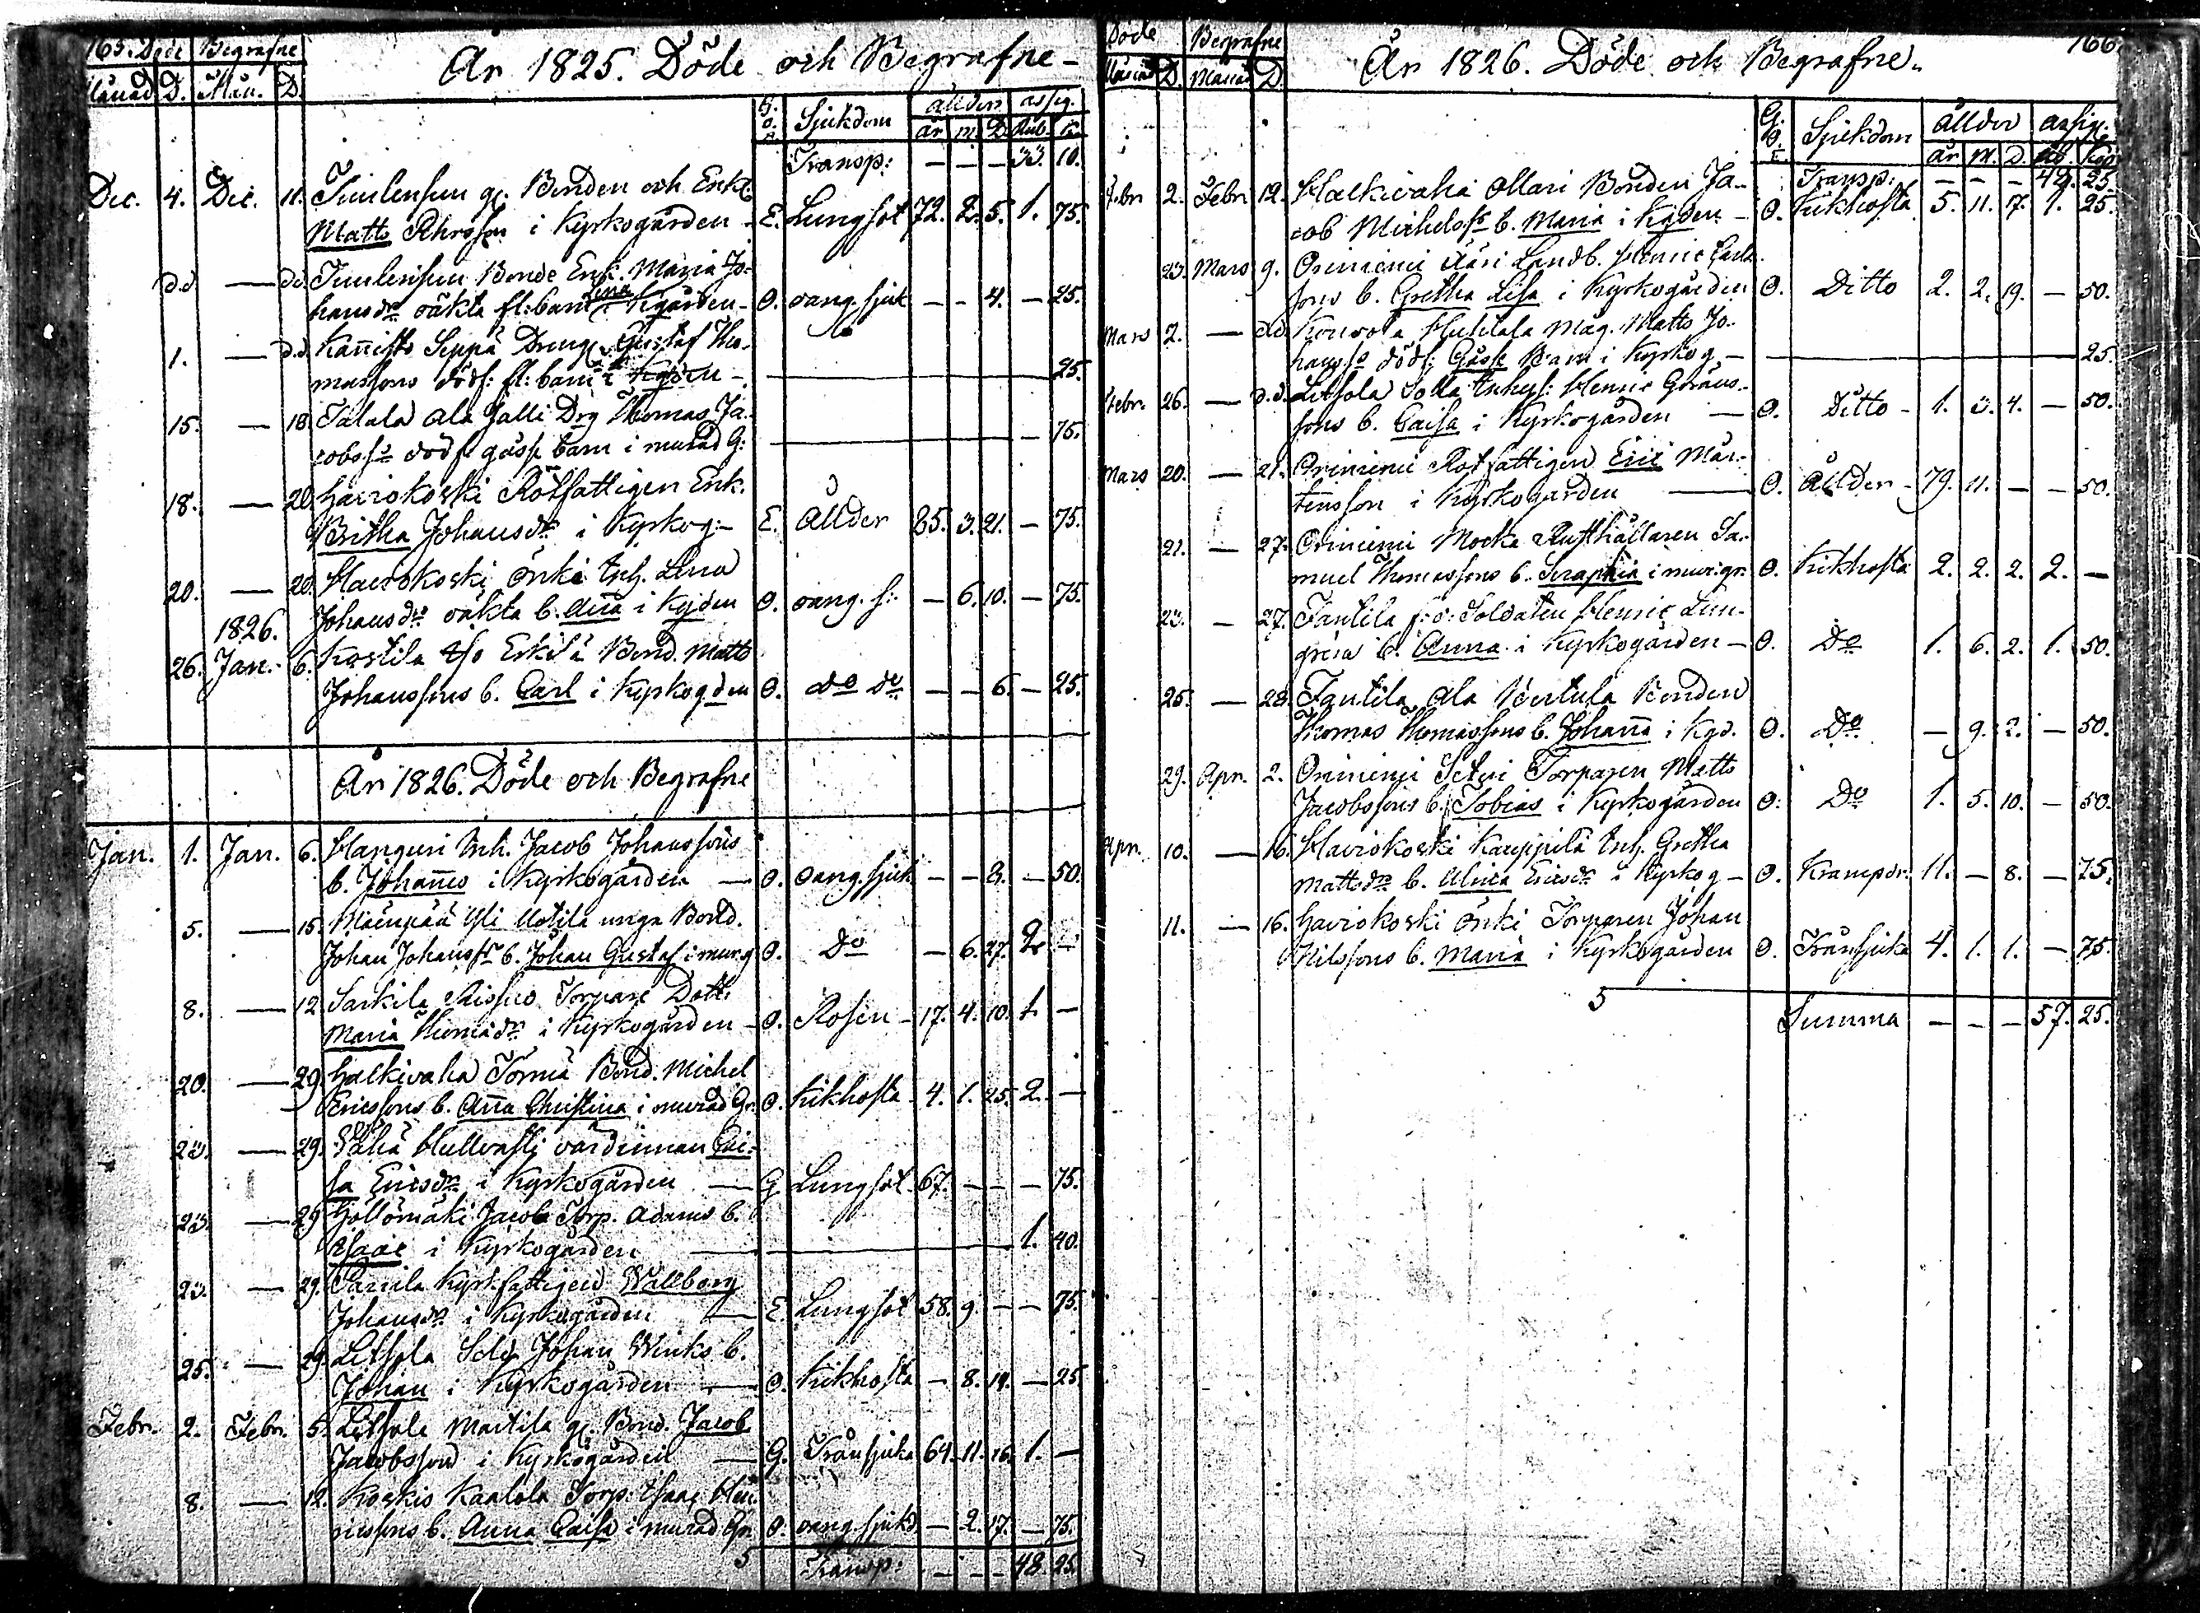 165. Döde Begrafne
Månad D. Mån. D.
År 1825. Döde och Begrafne
G. O. E. Sjukdom ållder assig.
år m. D. Rub. K.
Transp: — — — 33. 10.
Dec. 4. Dec. 11. Timlensuu gl. Bonden och Enkl.
Matts Ährsson i Kyrkogården — E. Lungsot 72. 2. 5. 1. 75.
d.d — d.d Timlensuu Bonde Enk. Maria Jo-
hansdr oäkta fl: barn i Kgården — O. oäng. sjuk — — 4. — 25.
1. — d.d. Kannisto Seppä Dreng Gustaf Tho-
massons dödf: fl: barn i Kgden — 25.
15. — 18. Talala Ala Jalli Drg Thomas Ja-
cobss:s dödf gåsse barn i murad G: — 75.
18. — 20. Haviokoski Rotfattigen Enk.
Britha Johansdr i Kyrkog: — E. Ållder 85. 3. 21. — 75.
20. — 20. Haviokoski Önki Inh. Lena
Johansdrs oäkta b. Anna i Kgden O. oäng. s: — 6. 10. — 75.
1826.
26. Jan. 6. Kostila Eskilä Bond. Matts
Johanssons b. Carl i Kyrkogden O. do do — — 6. — 25.
År 1826. Döde och Begrafne
Jan. 1. Jan. 6. Hanguri Inh. Jacob Johanssons
b. Johannes i Kyrkogården — O. oäng. sjuk — — 8. — 50.
5. — 15. Mäenpää Yli Uotila unga Bond.
Johan Johanss:s b. Johan Gustaf i mur.g O. Do — 6. 27. 2. —
8. — 12. Sarkila Torpare Dott.
Maria i Kyrkogården — O. Rosen — 17. 4. 10. 1. —
20. — 29. Halkivaha Törmä Bond. Michel
Ericssons b. Anna Christina i murad Gr. O. Kikhosta 4. 1. 25. 2. —
23. — 29. Wähä Hullvasti värdinnan Cai-
sa Ericsdr i Kyrkogården — G Lungsot 67. — — — 75.
23. — 29. Jacob Torp. Adams b.
Isaac i Kyrkogården — 1. 40.
23. — 29. Kyrk fattigen Wallborg
Johansdr i Kyrkogården — E. Lungsot 58. 9. — — 75.
25. — 29. Littsola Sold. Johan Winks b.
Johan i Kyrkogården — O. Kikhosta — 8. 19. — 25
Febr. 2. Febr. 5. Littsola Martila gl. Bond. Jacob
Jacobsson i Kyrkogården — G. Trånsjuka 64. 11. 16. 1. —
8. — 12. Koskis Kaalola Torp: Isaac Hen-
ricssons b. Anna Caisa i murad Gr. O. oäng. sjukd — 2. 17. — 75.
5 Transp: — — — 48. 25.
Döde Begrafne
Månad D. Månad D.
År 1826. Döde och Begrafne.
166.
G. O. E. Sjukdom ållder assig.
år m. D. Rb. Kop
Transp: — — — 48. 25.
Febr 2. Febr 12. Halkivaha Ollari Bonden Ja-
cob Michelss:s b. Maria i Kgden — O. Kikhosta 5. 11. 17. 1. 25.
23. Mars 9. Oriniemi Ääri Landb. Henric Carls-
sons b. Gretha Lisa i Kyrkogården O. Ditto 2. 2. 19. — 50.
Mars 2. — d.d. Kouvola Huhtala Måg. Matts Jo-
hanss:s dödf: Gåsse Barn i Kyrkog — 25.
Febr. 26. — d.d. Littsola Solla Inhys: Henric Görans-
sons b. Caisa i Kyrkogården — O. Ditto — 1. 3. 4. — 50.
Mars 20. — 21. Oriniemi Rotfattigen Eric Mår-
tensson i Kyrkogården — O. Ållder — 79. 11. — — 50.
21. — 27. Oriniemi Mocka Rusthållaren Sa-
muel Thomassons b. Seraphia i mur.gr. O. Kikhosta 2. 2. 2. 2. —
23. — 27. Tantila f:d: Soldaten Henric Lun-
gréns b. Anna i Kyrkogården — O. Do 1. 6. 2. 1. 50.
25. — 28. Tantila Ala Bertula Bonden
Thomas Thomassons b. Johanna i Kgd. O. Do — 9. 2. — 50.
29. Apr. 2. Oriniemi Torparen Matts
Jacobssons b. Tobias i Kyrkogården O: Do 1. 5. 10. — 50.
Apr. 10. — 16. Haviokoski Kauppila Inh. Gretha
Mattsdrs b. Ulrica Ericsdr i Kyrkog — O. Krampdr. 11. — 8. — 75.
11. — 16. Haviokoski Önki Torparen Johan
Nilssons b. Maria i Kyrkogården O. Trånsjuka 4. 1. 1. — 75.
5
Summa — — — 57. 25.